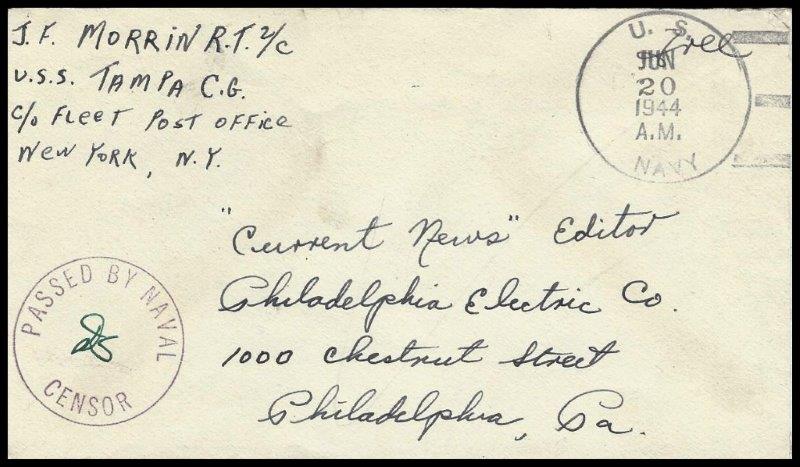 J.F. MORRIN R.T. 2/C
U.S.S. TAMPA C.G.
C/O FLEET POST OFFICE
NEW YORK, N.Y.
Free
U. S.
JUN
20
1944
A.M.
NAVY
"Current News" Editor
Philadelphia Electric Co.
1000 Chestnut Street
Philadelphia, Pa.
PASSED BY NAVAL
CENSOR